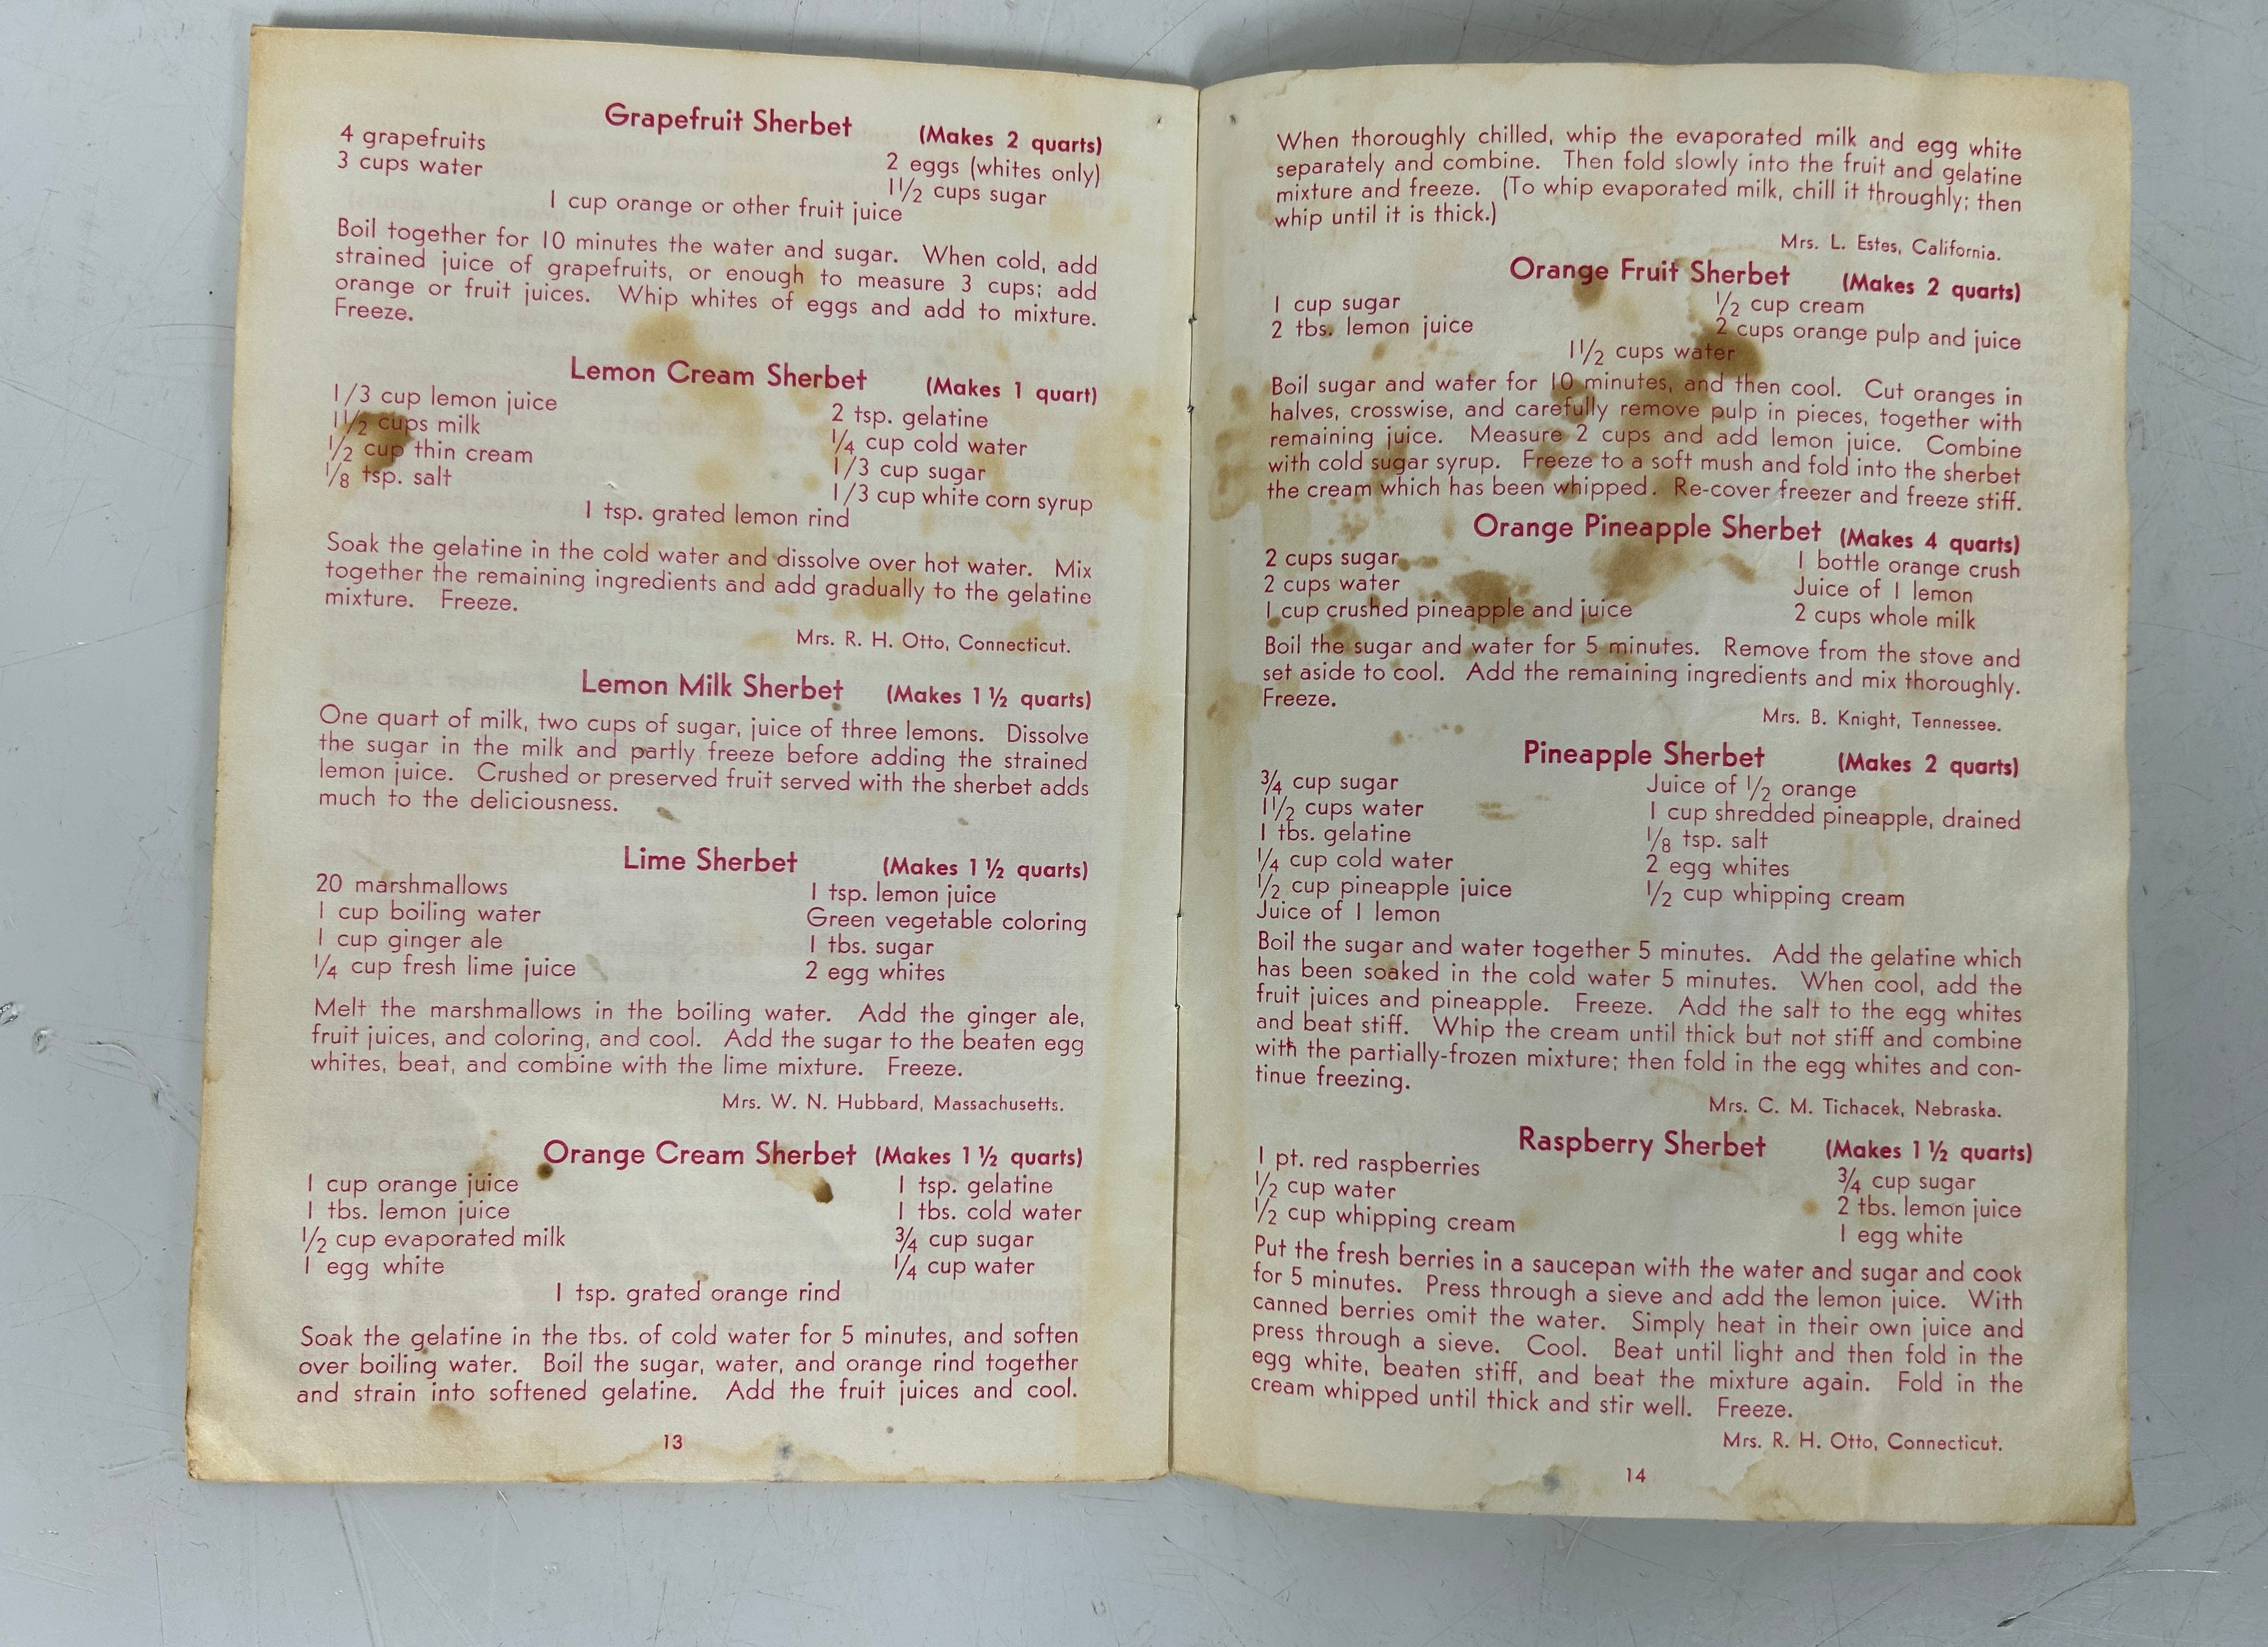 Grapefruit Sherbet (Makes 2 quarts)
4 grapefruits 2 eggs (whites only)
3 cups water 1 1/2 cups sugar
1 cup orange or other fruit juice
Boil together for 10 minutes the water and sugar. When cold, add
strained juice of grapefruits, or enough to measure 3 cups; add
orange or fruit juices. Whip whites of eggs and add to mixture.
Freeze.
Lemon Cream Sherbet (Makes 1 quart)
1/3 cup lemon juice 2 tsp. gelatine
1 1/2 cups milk 1/4 cup cold water
1/2 cup thin cream 1/3 cup sugar
1/8 tsp. salt 1/3 cup white corn syrup
1 tsp. grated lemon rind
Soak the gelatine in the cold water and dissolve over hot water. Mix
together the remaining ingredients and add gradually to the gelatine
mixture. Freeze.
Mrs. R. H. Otto, Connecticut.
Lemon Milk Sherbet (Makes 1 1/2 quarts)
One quart of milk, two cups of sugar, juice of three lemons. Dissolve
the sugar in the milk and partly freeze before adding the strained
lemon juice. Crushed or preserved fruit served with the sherbet adds
much to the deliciousness.
Lime Sherbet (Makes 1 1/2 quarts)
20 marshmallows 1 tsp. lemon juice
1 cup boiling water Green vegetable coloring
1 cup ginger ale 1 tbs. sugar
1/4 cup fresh lime juice 2 egg whites
Melt the marshmallows in the boiling water. Add the ginger ale,
fruit juices, and coloring, and cool. Add the sugar to the beaten egg
whites, beat, and combine with the lime mixture. Freeze.
Mrs. W. N. Hubbard, Massachusetts.
Orange Cream Sherbet (Makes 1 1/2 quarts)
1 cup orange juice 1 tsp. gelatine
1 tbs. lemon juice 1 tbs. cold water
1/2 cup evaporated milk 3/4 cup sugar
1 egg white 1/4 cup water
1 tsp. grated orange rind
Soak the gelatine in the tbs. of cold water for 5 minutes, and soften
over boiling water. Boil the sugar, water, and orange rind together
and strain into softened gelatine. Add the fruit juices and cool.
13
When thoroughly chilled, whip the evaporated milk and egg white
separately and combine. Then fold slowly into the fruit and gelatine
mixture and freeze. (To whip evaporated milk, chill it throughly; then
whip until it is thick.)
Mrs. L. Estes, California.
Orange Fruit Sherbet (Makes 2 quarts)
1 cup sugar 1/2 cup cream
2 tbs. lemon juice 2 cups orange pulp and juice
1 1/2 cups water
Boil sugar and water for 10 minutes, and then cool. Cut oranges in
halves, crosswise, and carefully remove pulp in pieces, together with
remaining juice. Measure 2 cups and add lemon juice. Combine
with cold sugar syrup. Freeze to a soft mush and fold into the sherbet
the cream which has been whipped. Re-cover freezer and freeze stiff.
Orange Pineapple Sherbet (Makes 4 quarts)
2 cups sugar 1 bottle orange crush
2 cups water Juice of 1 lemon
1 cup crushed pineapple and juice 2 cups whole milk
Boil the sugar and water for 5 minutes. Remove from the stove and
set aside to cool. Add the remaining ingredients and mix thoroughly.
Freeze.
Mrs. B. Knight, Tennessee.
Pineapple Sherbet (Makes 2 quarts)
3/4 cup sugar Juice of 1/2 orange
1 1/2 cups water 1 cup shredded pineapple, drained
1 tbs. gelatine 1/8 tsp. salt
1/4 cup cold water 2 egg whites
1/2 cup pineapple juice 1/2 cup whipping cream
Juice of 1 lemon
Boil the sugar and water together 5 minutes. Add the gelatine which
has been soaked in the cold water 5 minutes. When cool, add the
fruit juices and pineapple. Freeze. Add the salt to the egg whites
and beat stiff. Whip the cream until thick but not stiff and combine
with the partially-frozen mixture; then fold in the egg whites and con-
tinue freezing.
Mrs. C. M. Tichacek, Nebraska.
Raspberry Sherbet (Makes 1 1/2 quarts)
1 pt. red raspberries 3/4 cup sugar
1/2 cup water 2 tbs. lemon juice
1/2 cup whipping cream 1 egg white
Put the fresh berries in a saucepan with the water and sugar and cook
for 5 minutes. Press through a sieve and add the lemon juice. With
canned berries omit the water. Simply heat in their own juice and
press through a sieve. Cool. Beat until light and then fold in the
egg white, beaten stiff, and beat the mixture again. Fold in the
cream whipped until thick and stir well. Freeze.
Mrs. R. H. Otto, Connecticut.
14